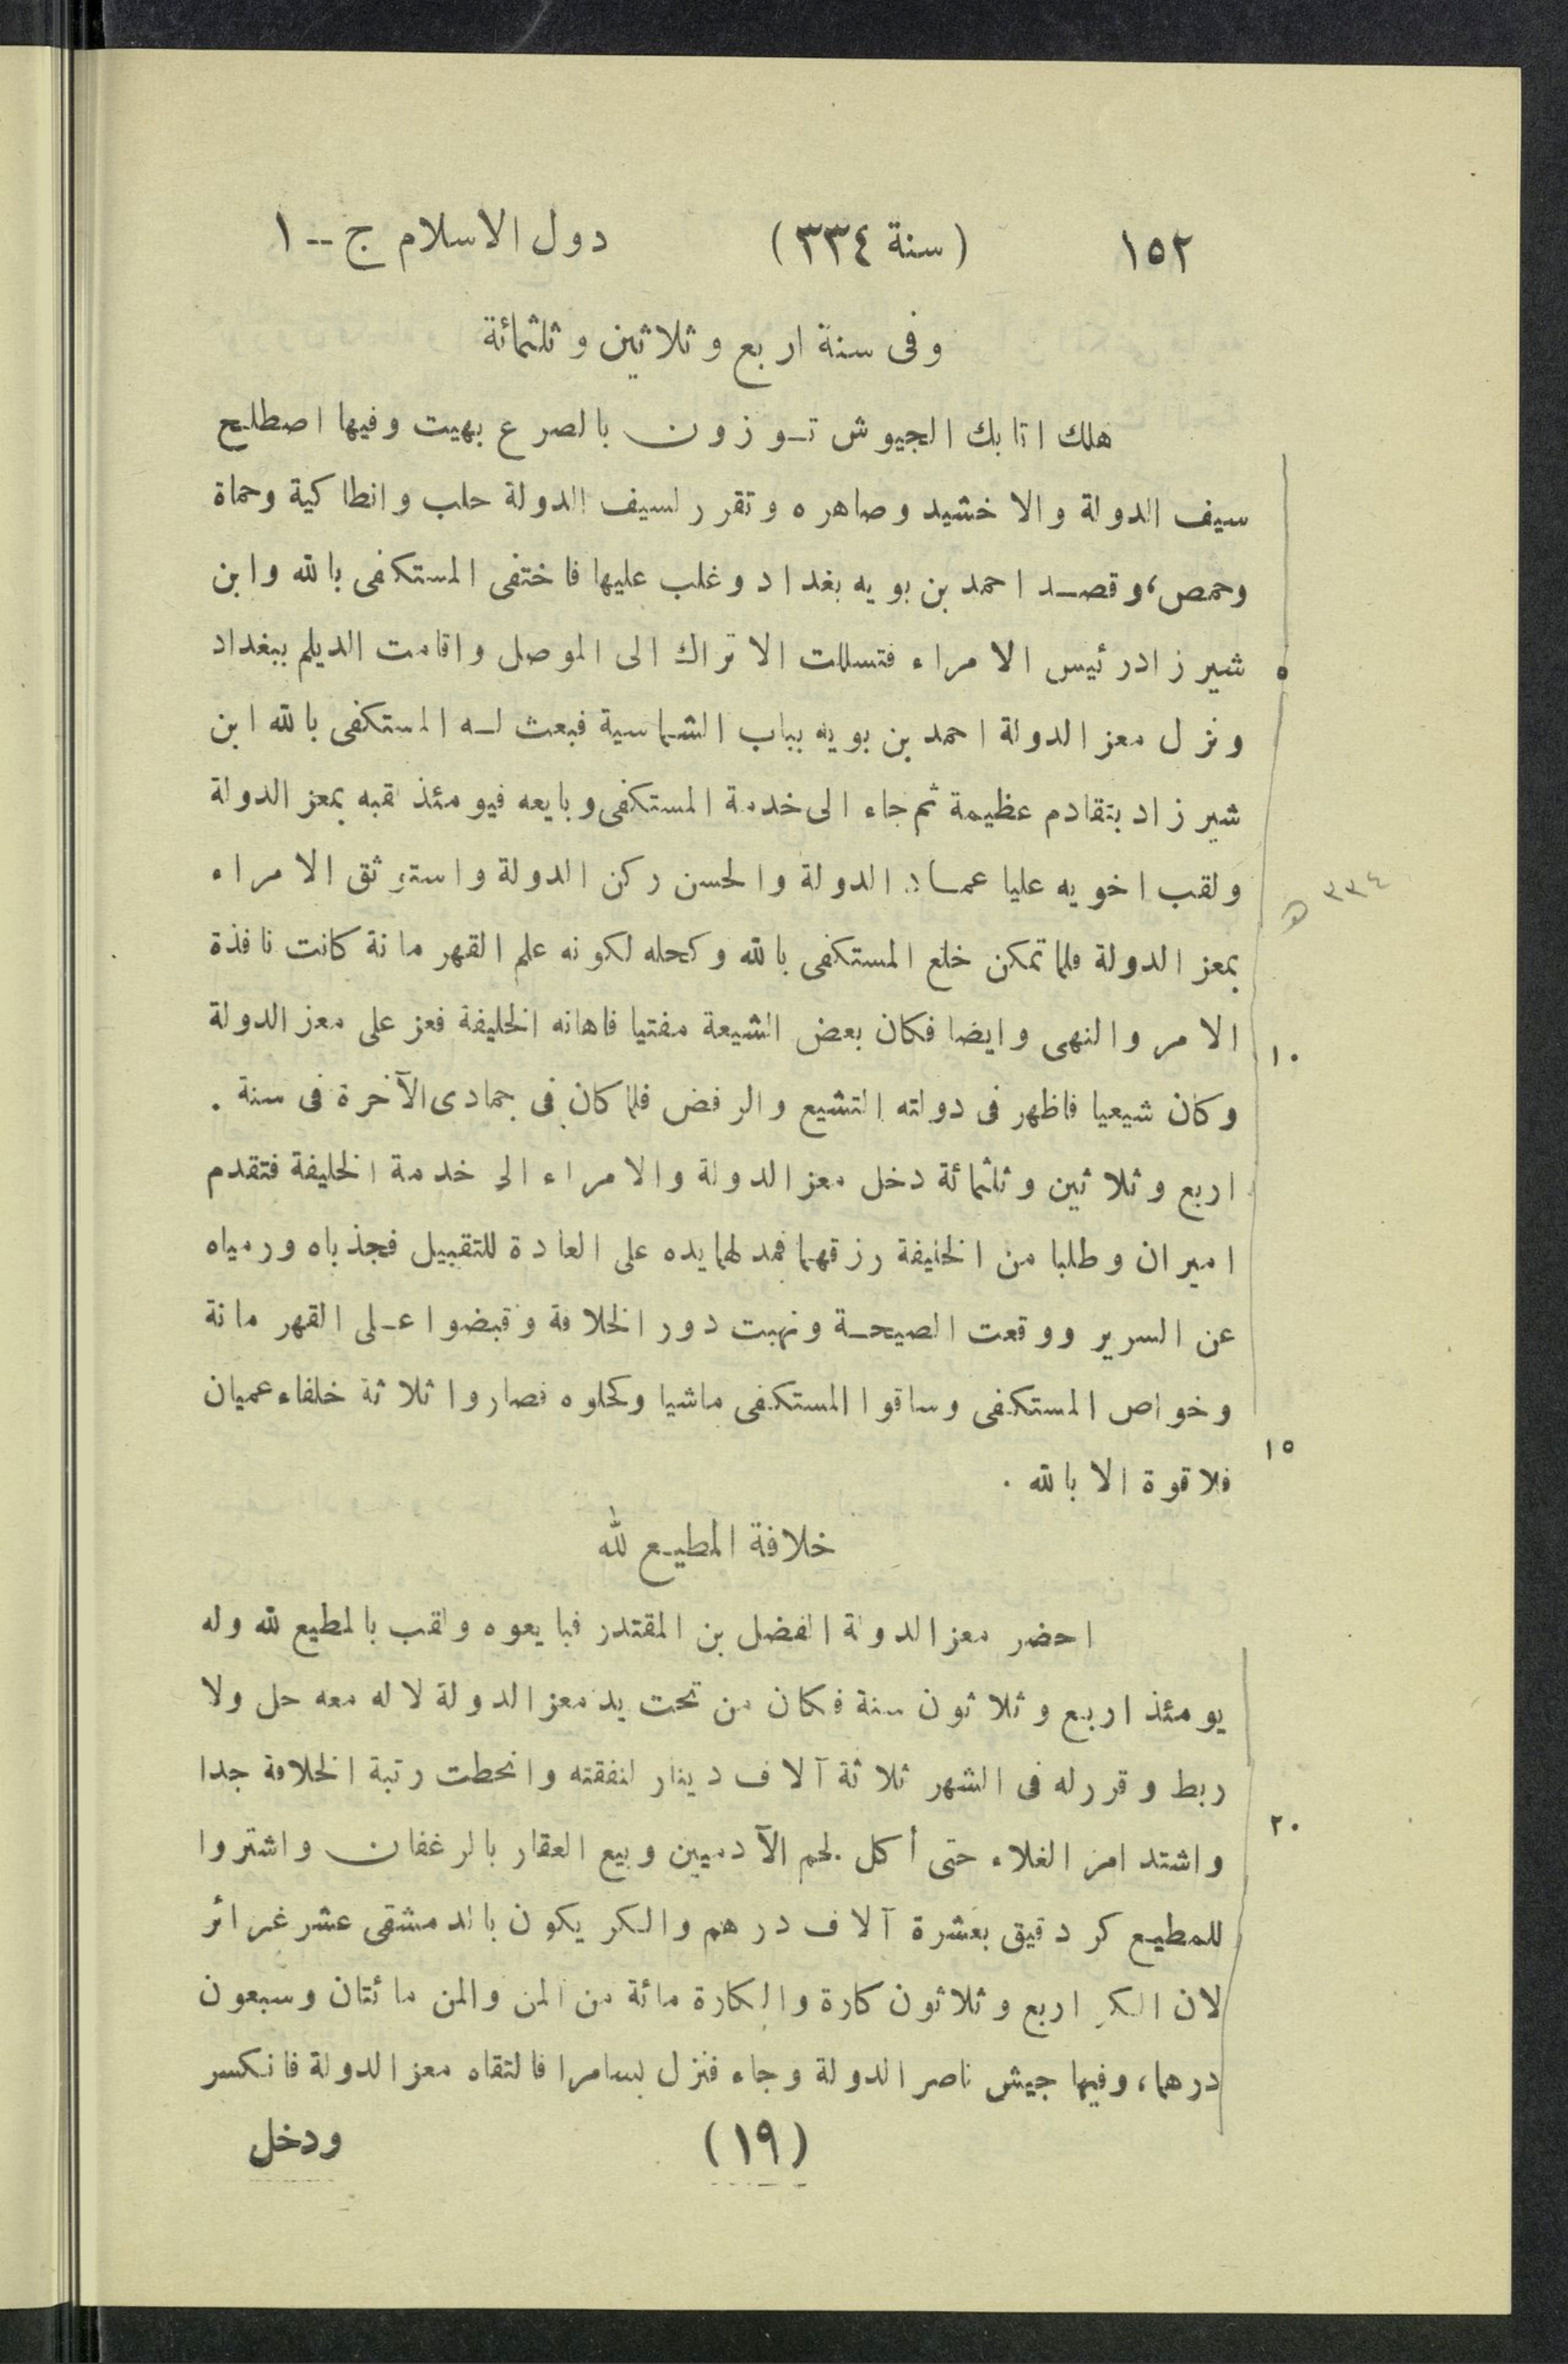 ١٥٢ (سنة ٣٣٤) دول الاسلام ج -- ١
وفى سنة اربع وثلاثين وثلثمائة
هلك اتابك الجيوش توزون بالصرع بهيت وفيها اصطلح
سيف الدولة والاخشيد وصاهره وتقرر لسيف الدولة حلب وانطاكية وحماة
وحمص، وقصد احمد بن بويه بغداد وغلب عليها فاختفى المستكفى بالله وابن
شير زاد رئيس الامراء فتسللت الاتراك الى الموصل واقامت الديلم ببغداد
٥
ونزل معز الدولة احمد بن بويه بباب الشماسية فبعث له المستكفى بالله ابن
شير زاد بتقادم عظيمة ثم جاء الى خدمة المستكفى وبايعه فيومئذ لقبه بمعز الدولة
ولقب اخويه عليا عماد الدولة والحسن ركن الدولة واستوثق الامراء
٣٣٤ ه
بمعز الدولة فلما تمكن خلع المستكفى بالله وكحله لكونه علم القهرمانة كانت نافذة
الامر والنهى وايضا فكان بعض الشيعة مفتيا فاهانه الخليفة فعز على معز الدولة
١٠
وكان شيعيا فاظهر فى دولته التشيع والرفض فلما كان فى جمادى الآخرة فى سنة .
اربع وثلاثين وثلثمائة دخل معز الدولة والامراء الى خدمة الخليفة فتقدم
اميران وطلبا من الخليفة رزقهما فمد لهما يده على العادة للتقبيل فجذباه ورمياه
عن السرير ووقعت الصيحة ونهبت دور الخلافة وقبضوا على القهرمانة
وخواص المستكفى وساقوا المستكفى ماشيا وكحلوه فصاروا ثلاثة خلفاء عميان
١٥
فلا قوة الا بالله .
خلافة المطيع لله
احضر معز الدولة الفضل بن المقتدر فبايعوه ولقب بالمطيع لله وله
يومئذ اربع وثلاثون سنة فكان من تحت يد معز الدولة لا له معه حل ولا
ربط وقرر له فى الشهر ثلاثة آلاف دينار لنفقته وانحطت رتبة الخلافة جدا
٢٠
واشتد امر الغلاء حتى أكل لحم الآدميين وبيع العقار بالرغفان واشتروا
للمطيع كر دقيق بعشرة آلاف درهم والكر يكون بالدمشقى عشر غرائر
لان الكر اربع وثلاثون كارة والكارة مائة من المن والمن مائتان وسبعون
درهما، وفيها جيش ناصر الدولة وجاء فنزل بسامرا فالتقاه معز الدولة فانكسر
(١٩) ودخل